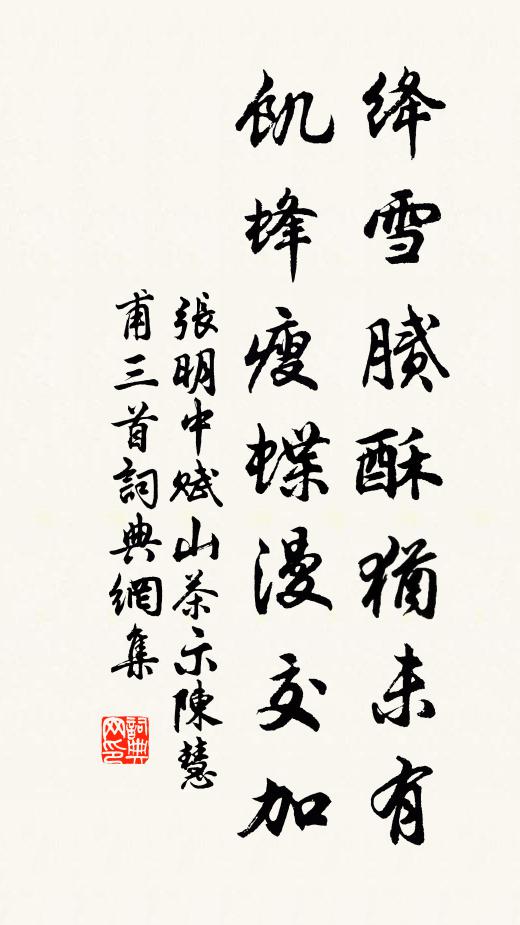 絳雪膩酥猶未有
飢蜂瘦蝶漫交加
張明中賦山茶示陳慧
甫三首詞典網集
詞典網印